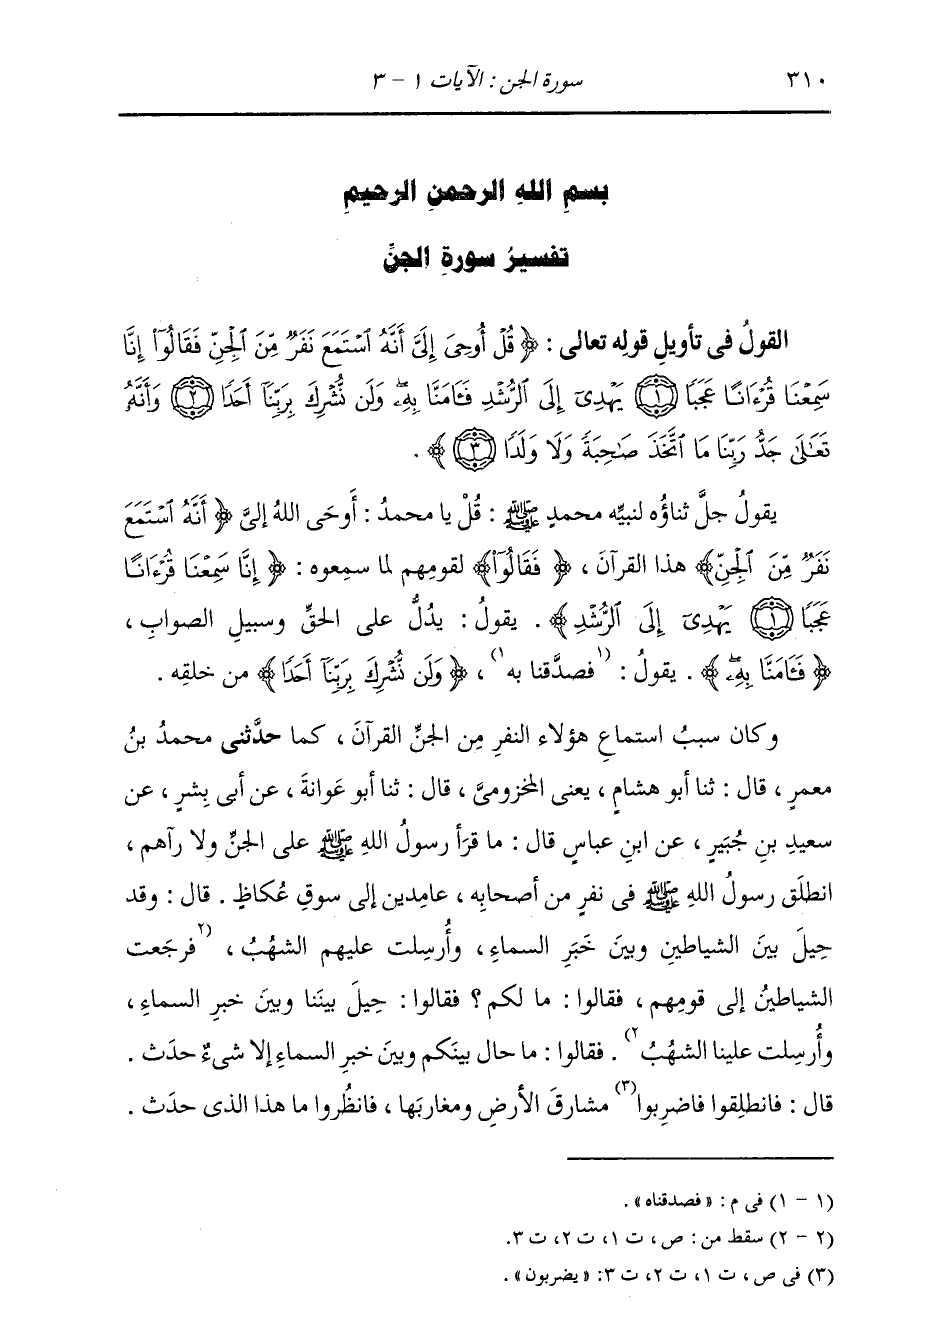 ٣١٠ سورة الجن : الآيات ١ - ٣
بسمِ اللهِ الرحمنِ الرحيمِ
تفسيرُ سورةِ الجنِّ
القولُ فى تأويلِ قولِه تعالى : ﴿ قُلْ أُوحِىَ إِلَىَّ أَنَّهُ ٱسْتَمَعَ نَفَرٌ مِّنَ ٱلْجِنِّ فَقَالُوٓا۟ إِنَّا
سَمِعْنَا قُرْءَانًا عَجَبًا ﴿١﴾ يَهْدِىٓ إِلَى ٱلرُّشْدِ فَـَٔامَنَّا بِهِۦۖ وَلَن نُّشْرِكَ بِرَبِّنَآ أَحَدًا ﴿٢﴾ وَأَنَّهُۥ
تَعَـٰلَىٰ جَدُّ رَبِّنَا مَا ٱتَّخَذَ صَـٰحِبَةً وَلَا وَلَدًا ﴿٣﴾ ﴾ .
يقولُ جلَّ ثناؤُه لنبيِّه محمدٍ ﷺ : قُلْ يا محمدُ : أَوحَى اللهُ إلىَّ ﴿ أَنَّهُ ٱسْتَمَعَ
نَفَرٌ مِّنَ ٱلْجِنِّ﴾ هذا القرآنَ ، ﴿ فَقَالُوٓا۟﴾ لقومِهم لما سمِعوه : ﴿ إِنَّا سَمِعْنَا قُرْءَانًا
عَجَبًا ﴿١﴾ يَهْدِىٓ إِلَى ٱلرُّشْدِ﴾ . يقولُ : يدُلُّ على الحقِّ وسبيلِ الصوابِ ،
﴿ فَـَٔامَنَّا بِهِۦۖ ﴾ . يقولُ : (١فصدَّقنا به١) ، ﴿ وَلَن نُّشْرِكَ بِرَبِّنَآ أَحَدًا ﴾ من خلقِه .
وكان سببُ استماعِ هؤلاء النفرِ مِن الجنِّ القرآنَ ، كما حدَّثنى محمدُ بنُ
معمرٍ ، قال : ثنا أبو هشامٍ ، يعنى المخزومىَّ ، قال : ثنا أبو عَوانةَ ، عن أبى بِشرٍ ، عن
سعيدِ بنِ جُبَيرٍ ، عن ابنِ عباسٍ قال : ما قرَأ رسولُ اللهِ ﷺ على الجنِّ ولا رآهم ،
انطلَق رسولُ اللهِ ﷺ فى نفرٍ من أصحابِه ، عامِدين إلى سوقِ عُكاظٍ . قال : وقد
حِيلَ بينَ الشياطينِ وبينَ خَبَرِ السماءِ ، وأُرسِلت عليهم الشهُبُ ، (٢فرجَعت
الشياطينُ إلى قومِهم ، فقالوا : ما لكم ؟ فقالوا : حِيلَ بينَنا وبينَ خبرِ السماءِ ،
وأُرسِلت علينا الشهُبُ٢) . فقالوا : ما حال بينَكم وبينَ خبرِ السماءِ إلا شىءٌ حدَث .
قال : فانطلِقوا فاضرِبوا(٣) مشارقَ الأرضِ ومغاربَها ، فانظُروا ما هذا الذى حدَث .
(١ - ١) فى م : « فصدقناه » .
(٢ - ٢) سقط من : ص ، ت ١، ت ٢، ت ٣.
(٣) فى ص ، ت ١، ت ٢، ت ٣: « يضربون » .